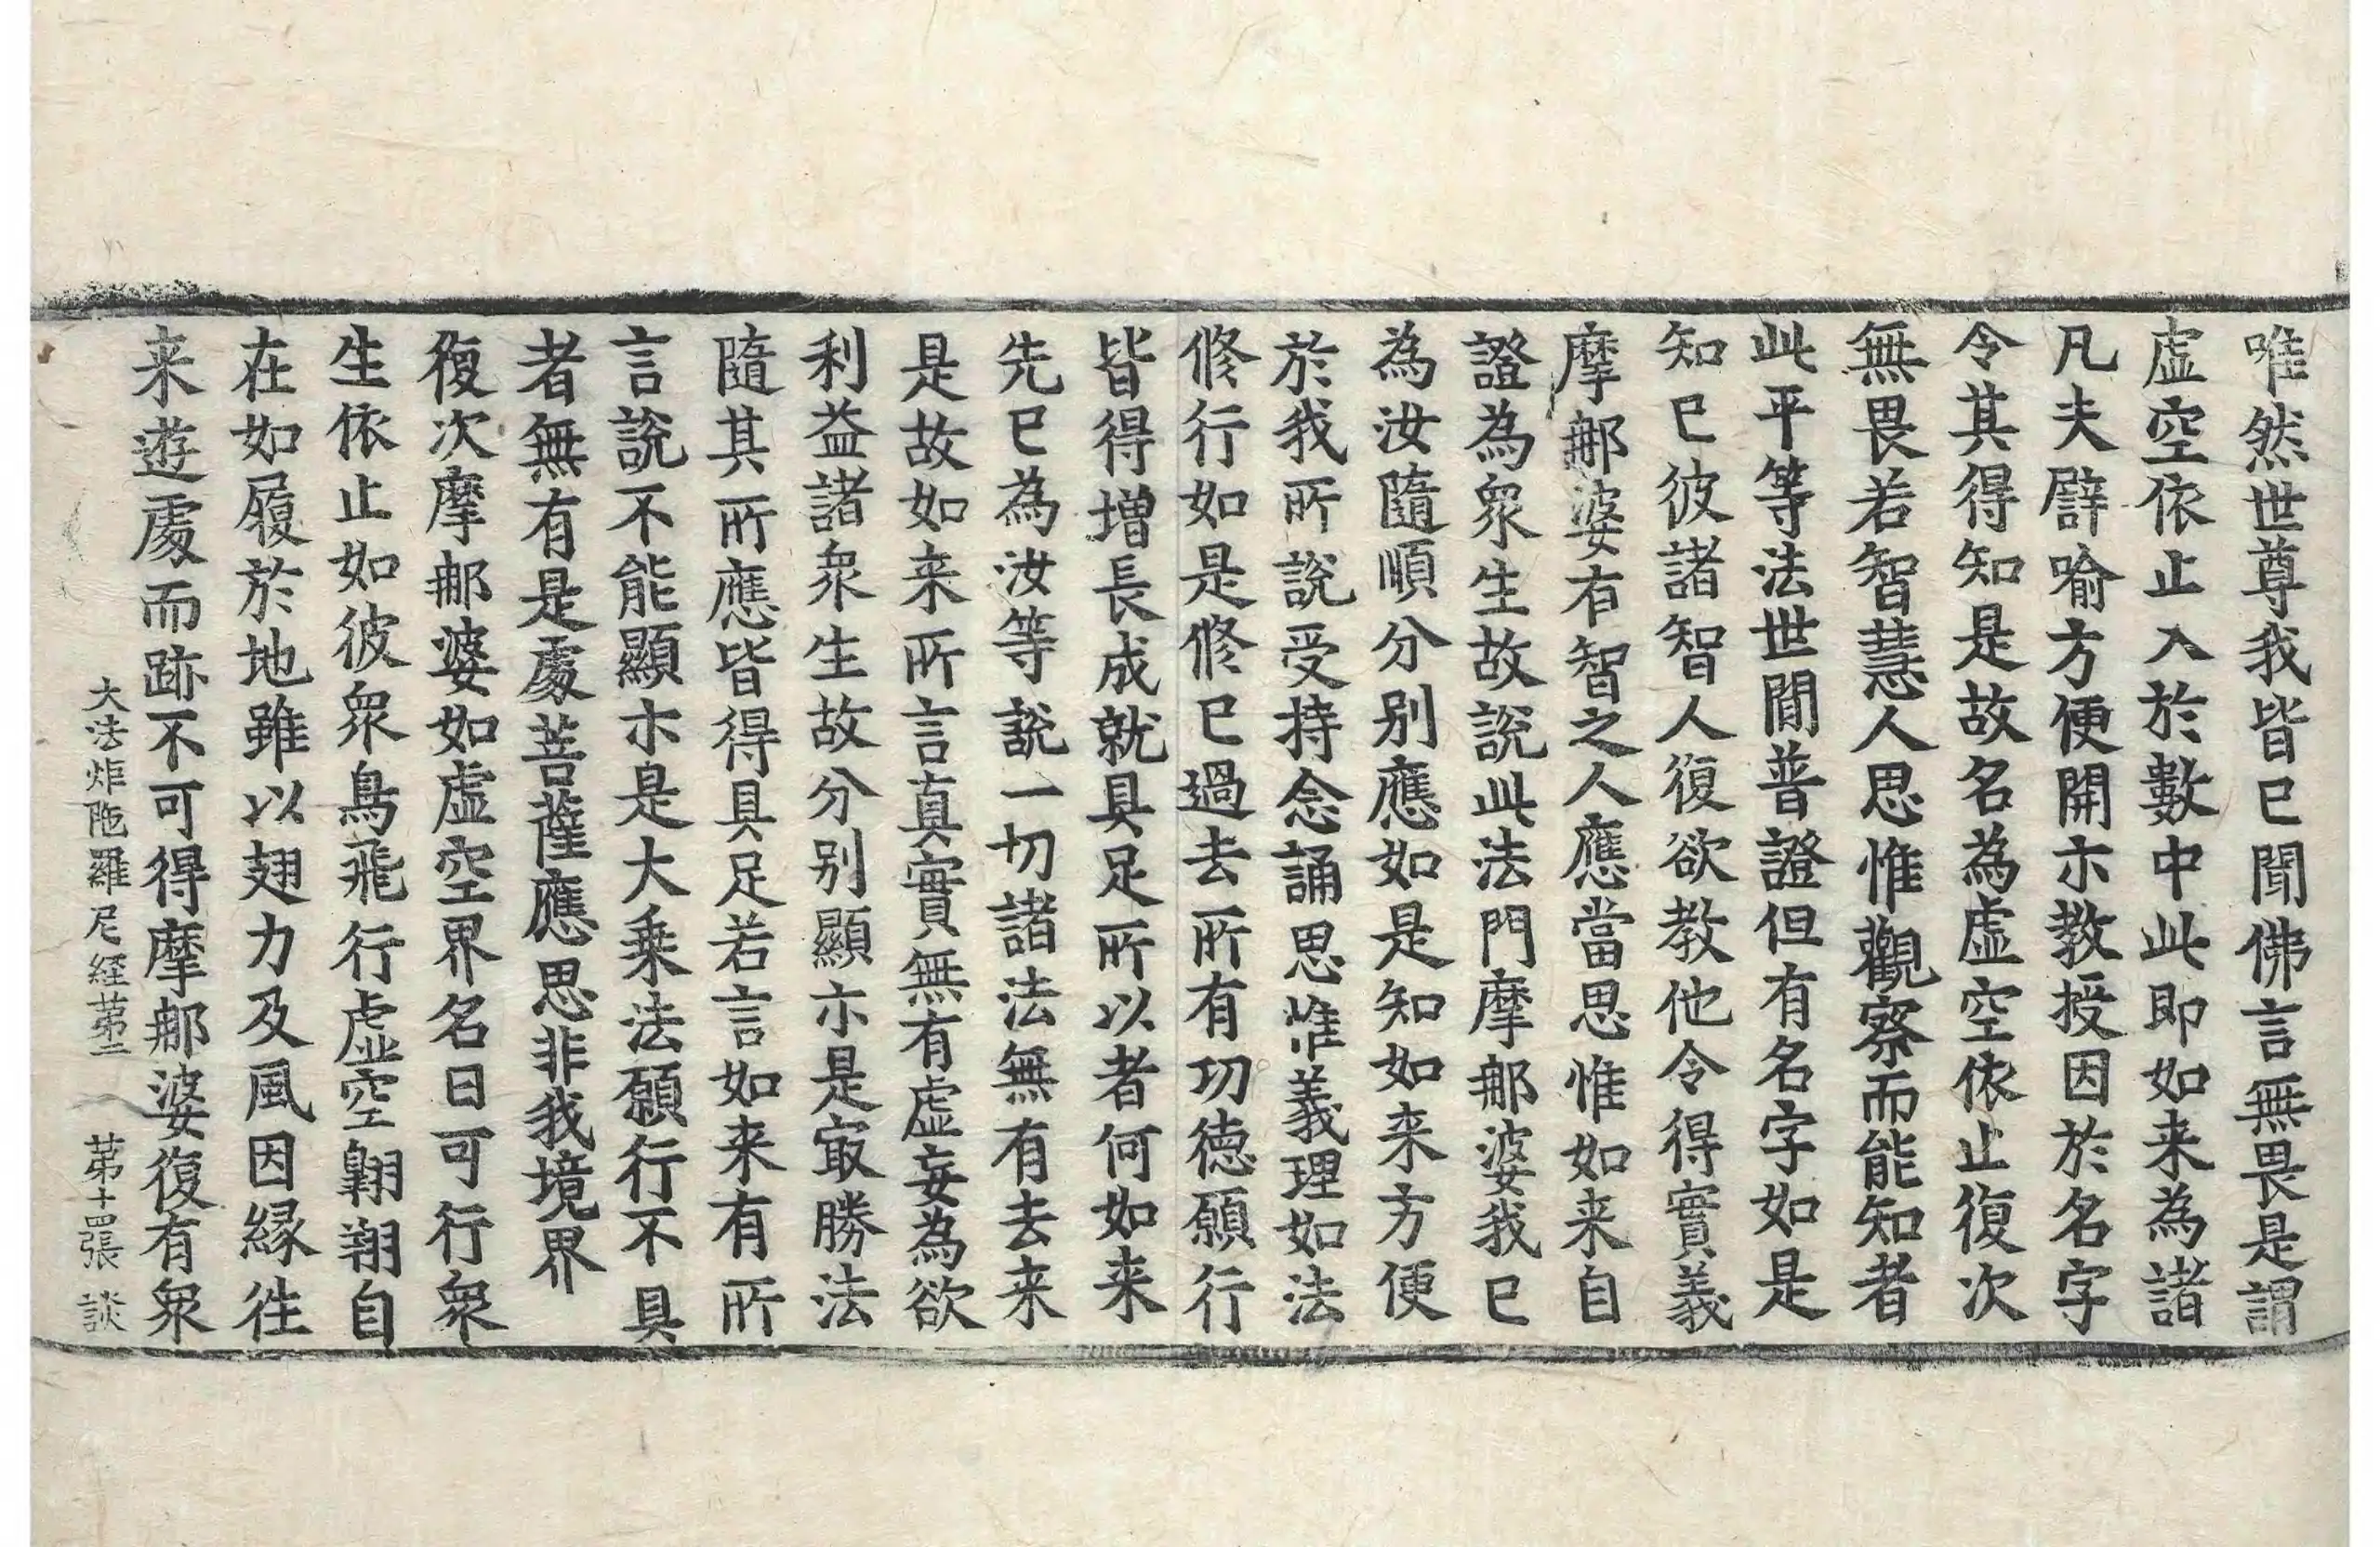 唯然世尊我皆已聞佛言無畏是謂
虛空依止入於數中此即如来為諸
凡夫譬喻方便開示教授因於名字
令其得知是故名為虛空依止復次
無畏若智慧人思惟觀察而能知者
此平等法世間普證但有名字如是
知已彼諸智人復欲教他令得實義
摩那婆有智之人應當思惟如来自
證為衆生故說此法門摩那婆我已
為汝隨順分別應如是知如来方便
於我所說受持念誦思惟義理如法
修行如是修已過去所有功德願行
皆得增長成就具足所以者何如来
先已為汝等說一切諸法無有去来
是故如来所言真實無有虛妄為欲
利益諸衆生故分別顯示是㝡勝法
隨其所應皆得具足若言如来有所
言說不能顯示是大乗法願行不具
者無有是處菩薩應思非我境界
復次摩那婆如虛空界名曰可行衆
生依止如彼衆鳥飛行虛空翺翔自
在如履於地雖以翅力及風因緣往
来遊處而跡不可得摩那婆復有衆
大法炬陁羅尼經第二 第十四張 談